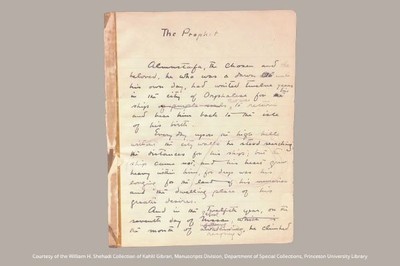 The Prophet
Almustafa, the Chosen and the
beloved, he who was a dawn unto
his own day, had waited twelve years
in the city of Orphalese for the
ships
and bear him back to the isle
of his birth.
Every day, upon the high hills
without the city walls he stood searching
the distances for his ship; but his
ship came not, and his heart grew
heavy within him, for deep was his
longing for the land of his memories
and the dwelling place of his
greater desires.
And in the twelfth year, on the
seventh day of
the month of he climbed
Courtesy of the William H. Shehadi Collection of Kahlil Gibran, Manuscripts Division, Department of Special Collections, Princeton University Library